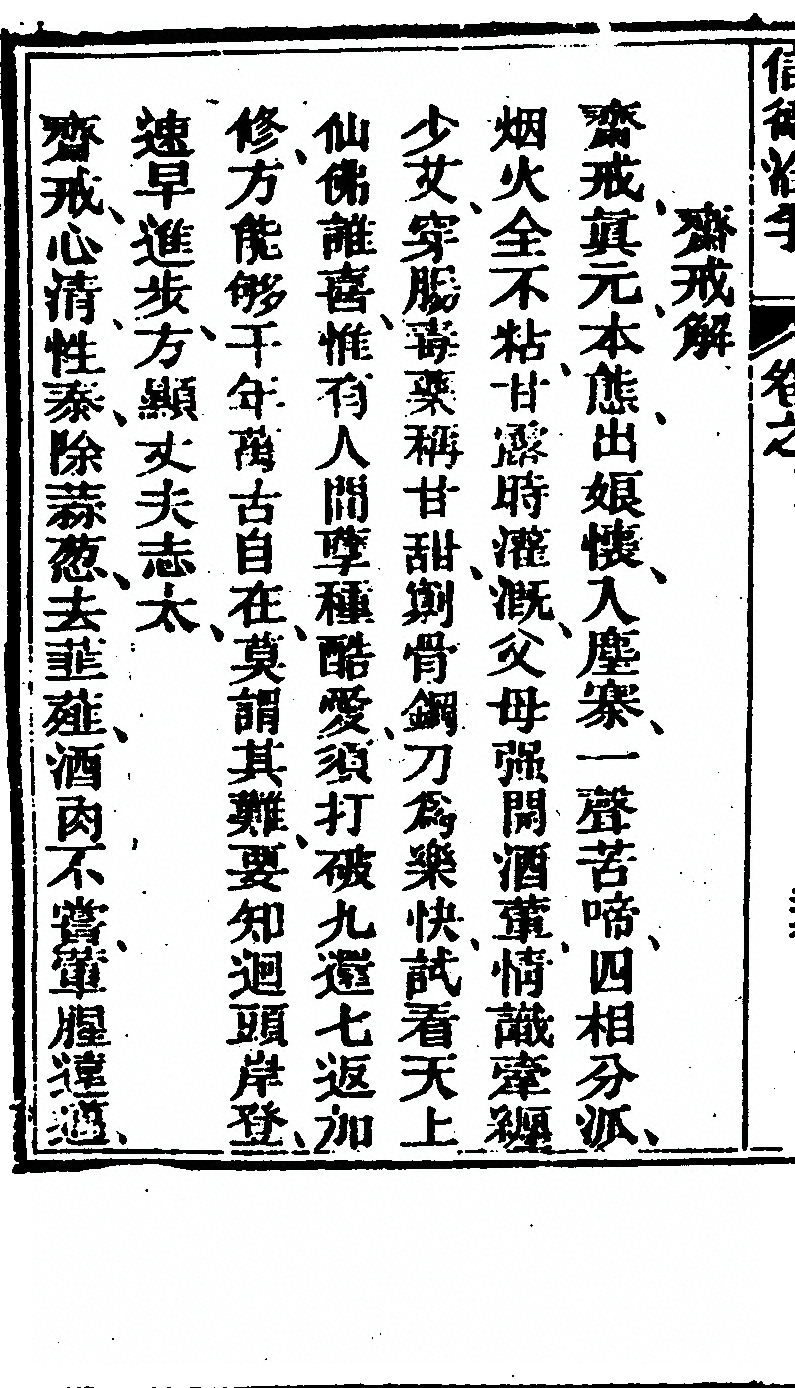 齋戒解
齋戒、眞元、本態、出娘懷、入塵寨、一聲苦啼、四相分派、
烟火全不粘、甘露時灌溉、父母强開酒葷、情識牽纏
少艾、穿腸毒藥稱甘甜、剮骨鋼刀爲樂快、試看天上
仙佛誰喜、惟有人間孽種酷愛、須打破九還七返加
修、方能够千年萬古自在、莫謂其難、要知迴頭岸登、
速早進步、方顯丈夫志太、
齋戒、心清、性泰、除蒜葱、去韭薤、酒肉不嘗、葷腥遠過、
卷之